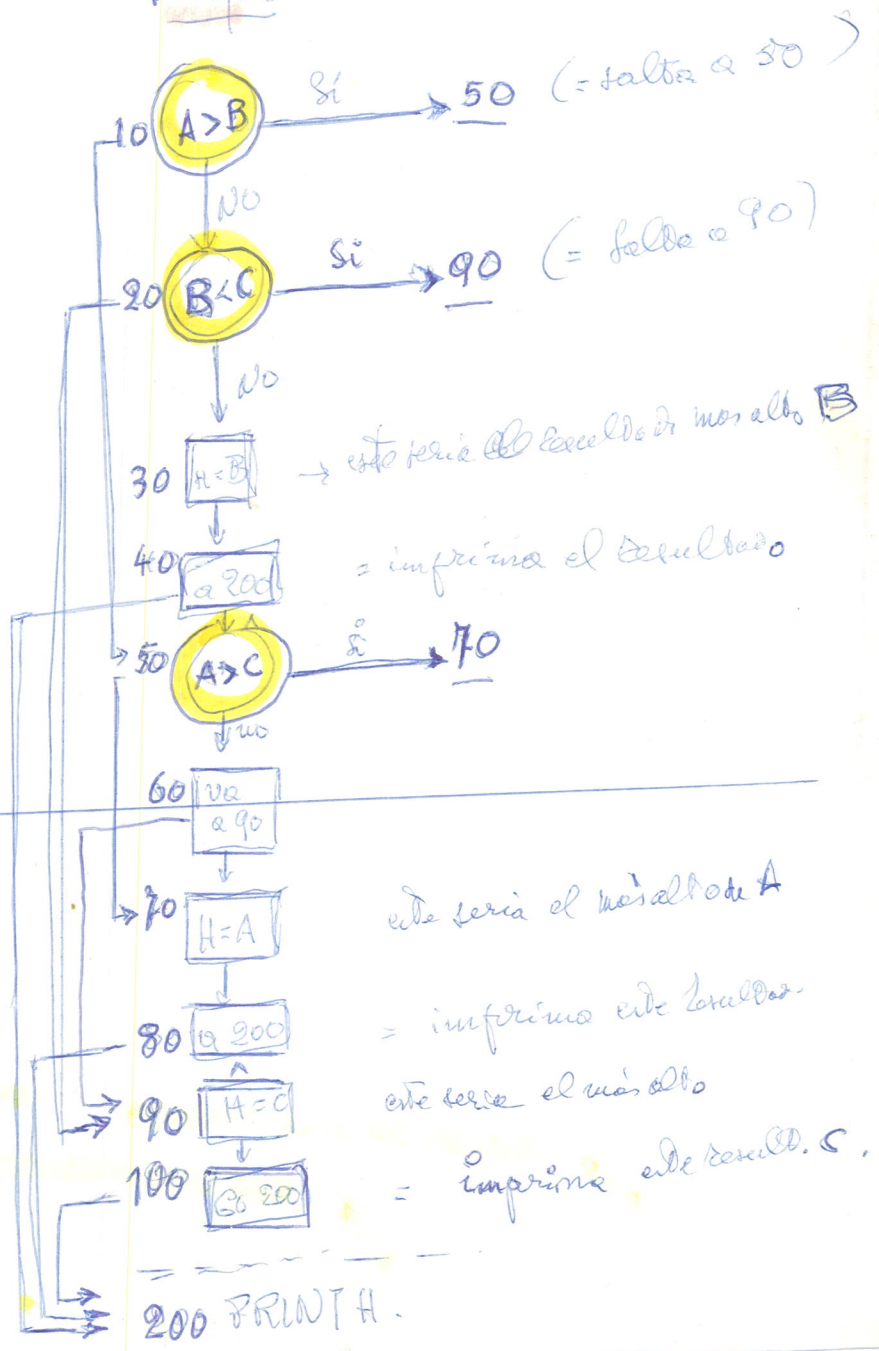 Si
50 (= salta a 50)
10 A > B
NO
Si
90 (= salta a 90)
20 B < C
NO
30 H = B → este seria el resultado mas alto B
40 a 200 = imprima el resultado
si
50 A > C 70
no
60 va
a 90
70 H = A este seria el más alto de A
80 a 200 = imprima este resultado.
90 H = C este seria el más alto
100 Go 200 = imprima este result. C.
200 PRINT H.